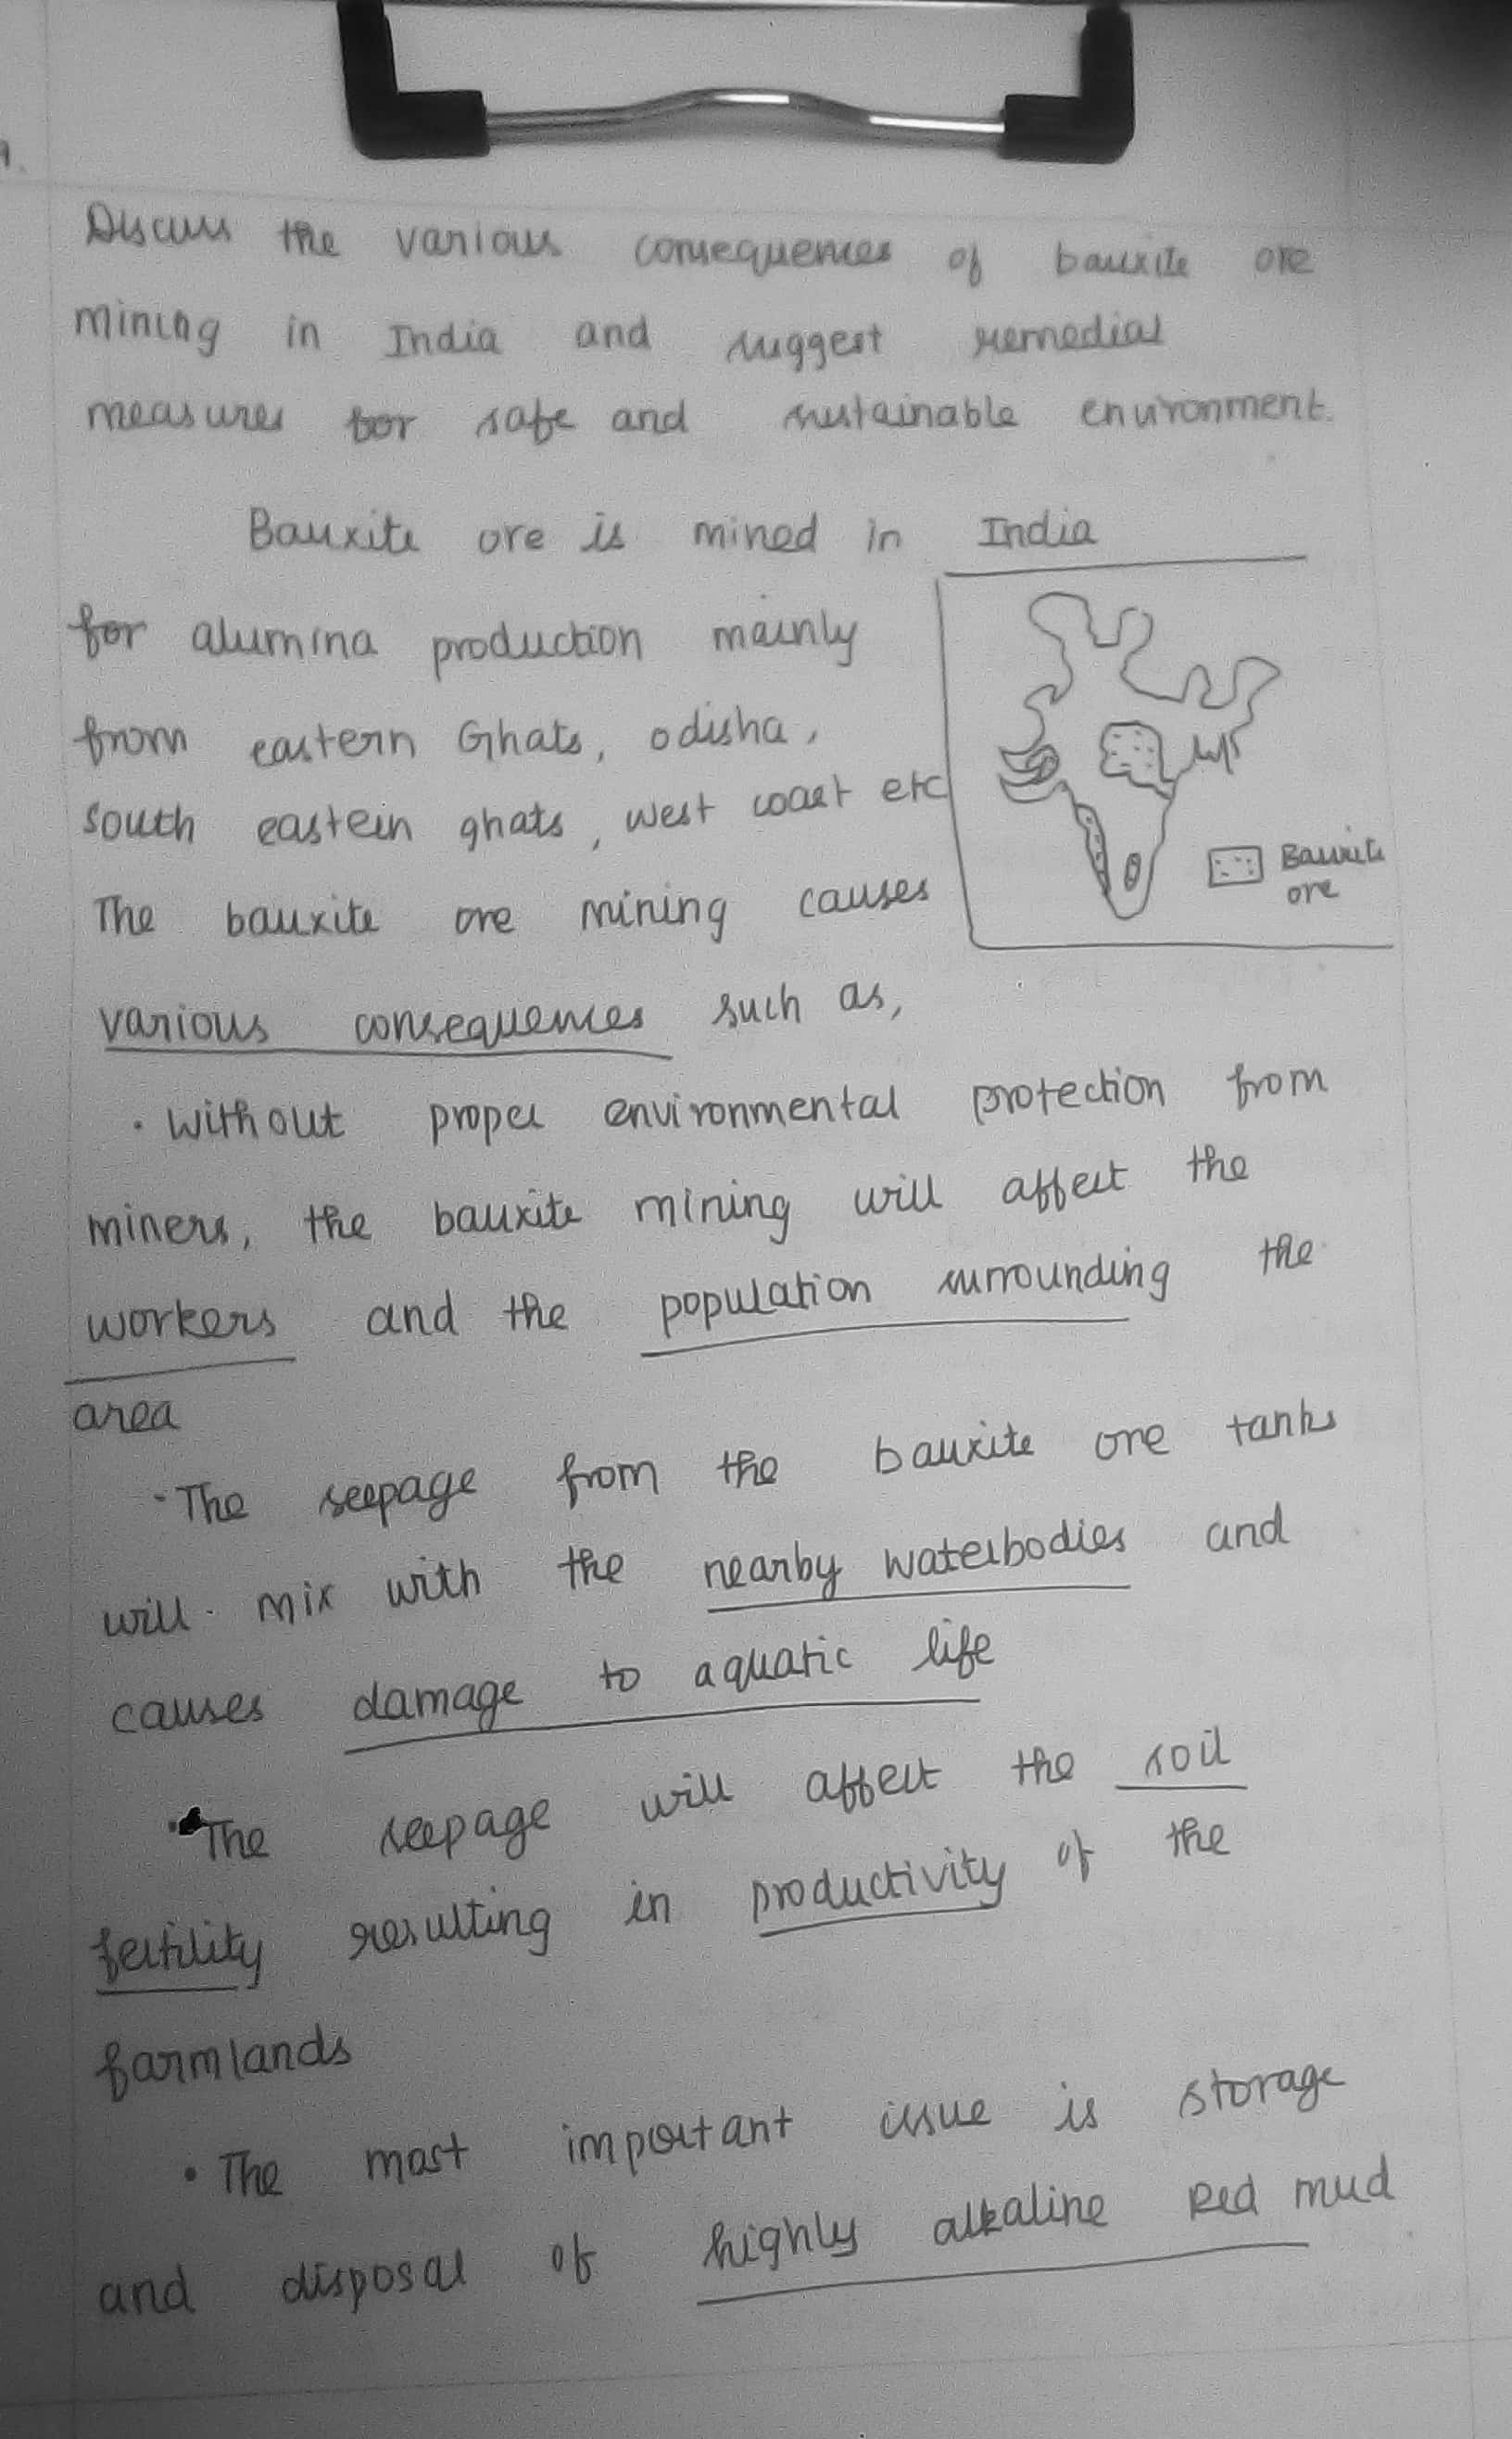 Discuss the various consequences of bauxite ore
mining in India and suggest remedial
measures for safe and sustainable environment.
Bauxite ore is mined in India
for alumina production mainly
from eastern Ghats, odisha,
south eastern ghats, west coast etc
The bauxite ore mining causes
various consequences such as,
Bauxite
ore
• Without proper environmental protection from
miners, the bauxite mining will affect the
workers and the population surrounding the
area
• The seepage from the bauxite ore tanks
will mix with the nearby waterbodies and
causes damage to aquatic life
• The seepage will affect the soil
fertility resulting in productivity of the
farmlands
• The most important issue is storage
and disposal of highly alkaline Red mud